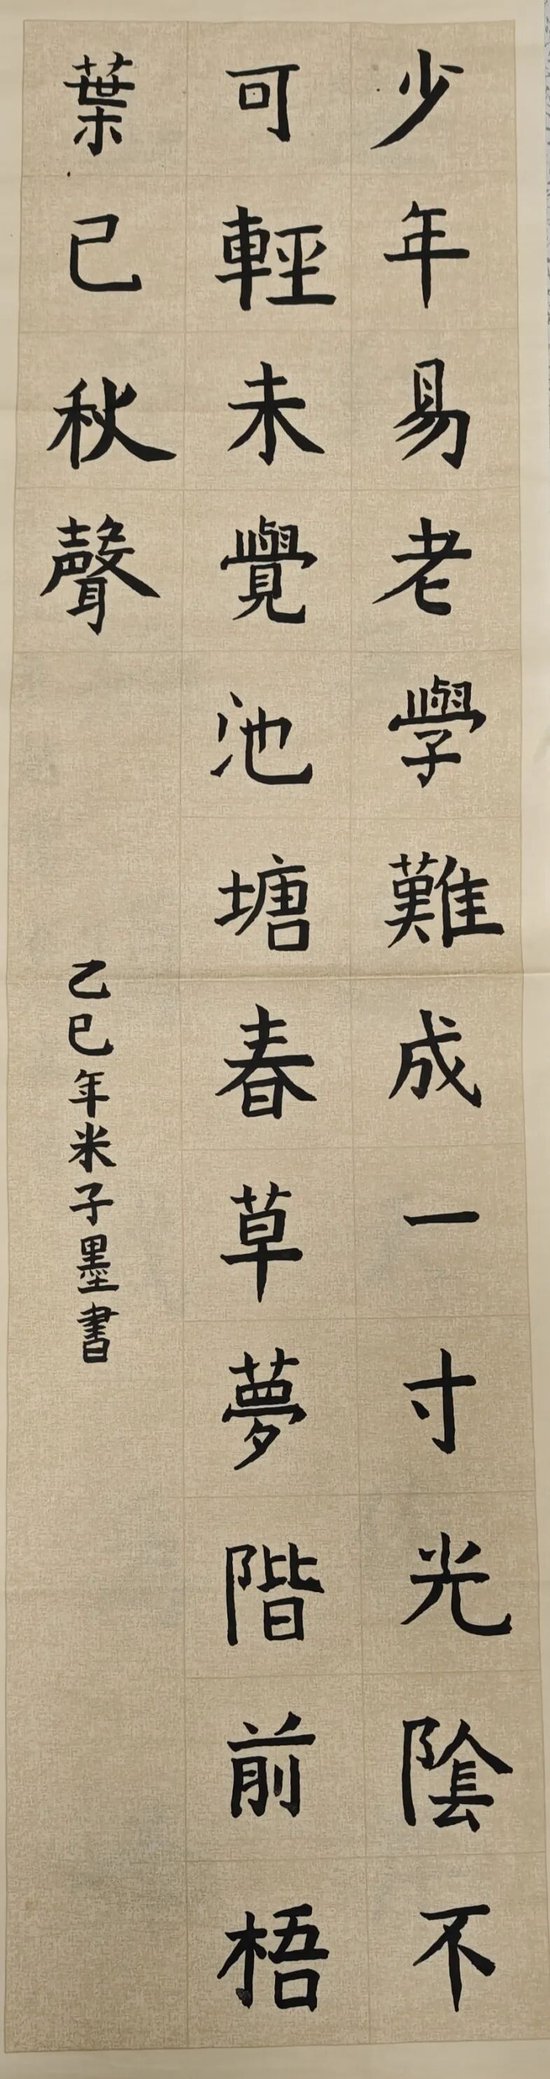 少年易老學難成一寸光陰不
可輕未覺池塘春草夢階前梧
葉已秋聲
乙巳年米子墨書